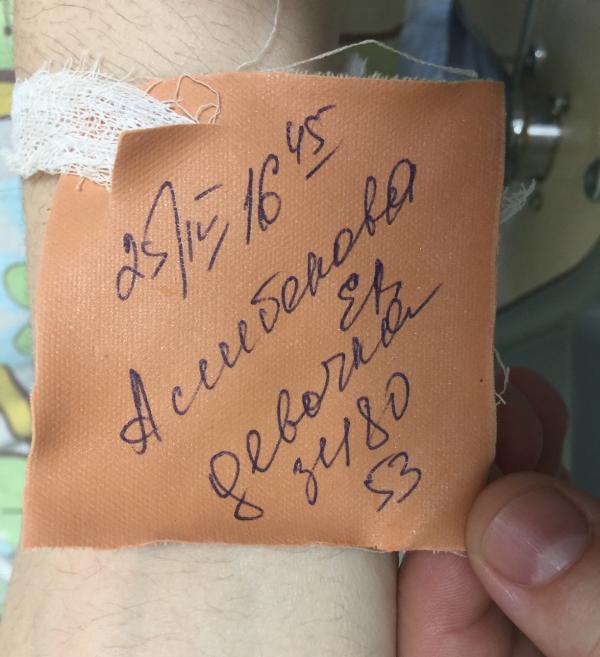 25/IV 16 45
Асилбекова
ЕВ
девочка
3480
53